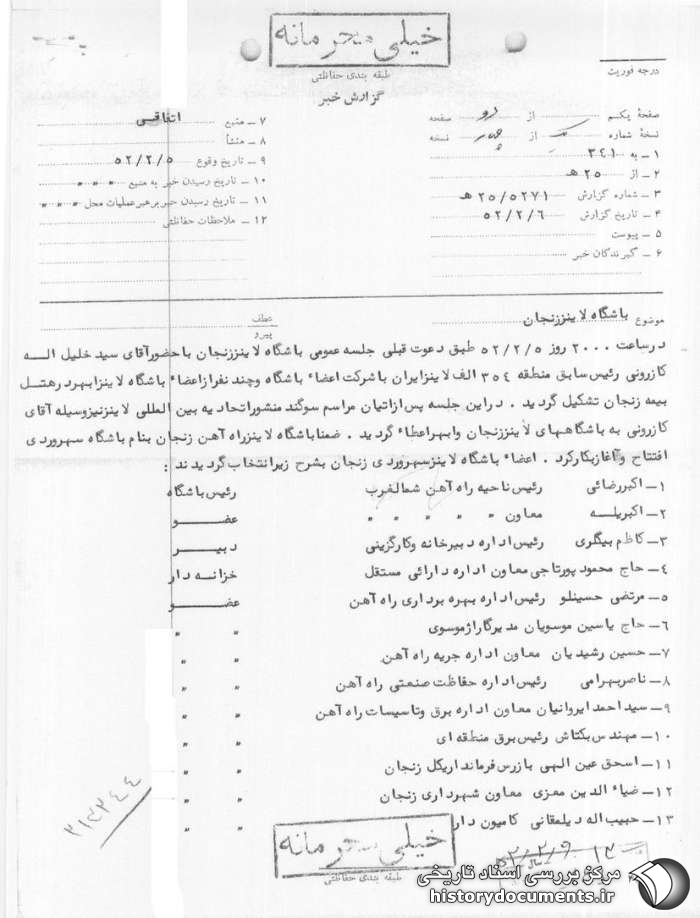 خیلی محرمانه
طبقه بندی حفاظتی
گزارش خبر
درجه فوریت
صفحهٔ یکم از دو صفحه
نسخهٔ شماره یک از چهار نسخه
۱ـ به ۳۴۱
۲ـ از ۲۵ هـ
۳ـ شماره گزارش ۲۵/۵۲۷۱ هـ
۴ـ تاریخ گزارش ۵۲/۲/۶
۵ ـ پیوست
۶ ـ گیرندگان خبر
۷ ـ منبع اتفاقی
۸ ـ منشأ
۹ ـ تاریخ وقوع ۵۲/۲/۵
۱۰ ـ تاریخ رسیدن خبر به منبع " " "
۱۱ ـ تاریخ رسیدن خبر برهبر عملیات محل " " "
۱۲ ـ ملاحظات حفاظتی
موضوع باشگاه لاینز زنجان
عطف
پیرو
درساعت ۲۰۰۰ روز ۵۲/۲/۵ طبق دعوت قبلی جلسه عمومی باشگاه لاینززنجان باحضورآقای سید خلیل اله
کازرونی رئیس سابق منطقه ۳۵۴ الف لاینزایران باشرکت اعضاء باشگاه وچند نفرازاعضاء باشگاه لاینزابهردرهتل
بیمه زنجان تشکیل گردید . دراین جلسه پس ازاتیان مراسم سوگند منشوراتحادیه بین المللی لاینزنیزوسیله آقای
کازرونی به باشگاههای لاینززنجان وابهراعطاء گردید . ضمناباشگاه لاینزراه آهن زنجان بنام باشگاه سهروردی
افتتاح وآغازبکارکرد . اعضاء باشگاه لاینزسهروردی زنجان بشرح زیرانتخاب گردیدند :
۱ـ اکبررضائی رئیس ناحیه راه آهن شمالغرب رئیس باشگاه
۲ـ اکبریلسه معاون " " " " عضـو
۳ـ کاظم بیگلری رئیس اداره دبیرخانه وکارگزینی دبیـر
۴ـ حاج محمود پورتاجی معاون اداره دارائی مستقل خزانـه دار
۵ـ مرتضی حسینلو رئیس اداره بهره برداری راه آهن عضـو
۶ـ حاج یاسین موسویان مدیرگاراژموسوی " "
۷ـ حسین رشیدیان معاون اداره جریه راه آهن " "
۸ـ ناصربهرامی رئیس اداره حفاظت صنعتی راه آهن " "
۹ـ سیداحمدایروانیان معاون اداره برق وتاسیسات راه آهن " "
۱۰ـ مهندس بکتاش رئیس برق منطقه ای " "
۱۱ـ اسحق عین الهی بازرس فرمانداریکل زنجان " "
۱۲ـ ضیاء الدین معزی معاون شهرداری زنجان " "
۱۳ـ حبیب اله دیلمقانی کامیون دار " "
خیلی محرمانه
طبقه بندی حفاظتی
مرکز بررسی اسناد تاریخی
historydocuments.ir